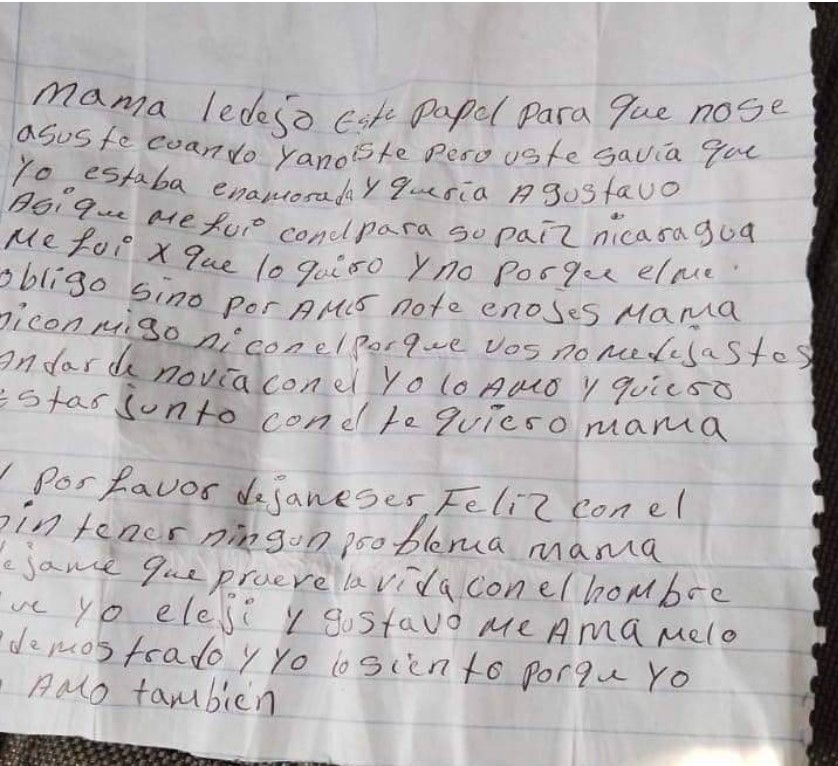 Mama ledejo este papel para que nose
asuste cuando yanoiste pero uste savia que
Yo estaba enamorada y queria A gustavo
Asi que me fui conel para su paiz nicaragua
Me fui x que lo quiero y no porque el me
obligo sino por AMor note enojes Mama
niconmigo ni con el porque vos no medejastes
andar de novia con el Yo lo AMO y quiero
estar junto con el te quiero mama
Y Por favor dejameser Feliz con el
sin tener ningun problema mama
dejame queprueve la vida con el hombre
que yo eleji y gustavo Me AMA Melo
demostrado y Yo lo siento porque Yo
AMO también